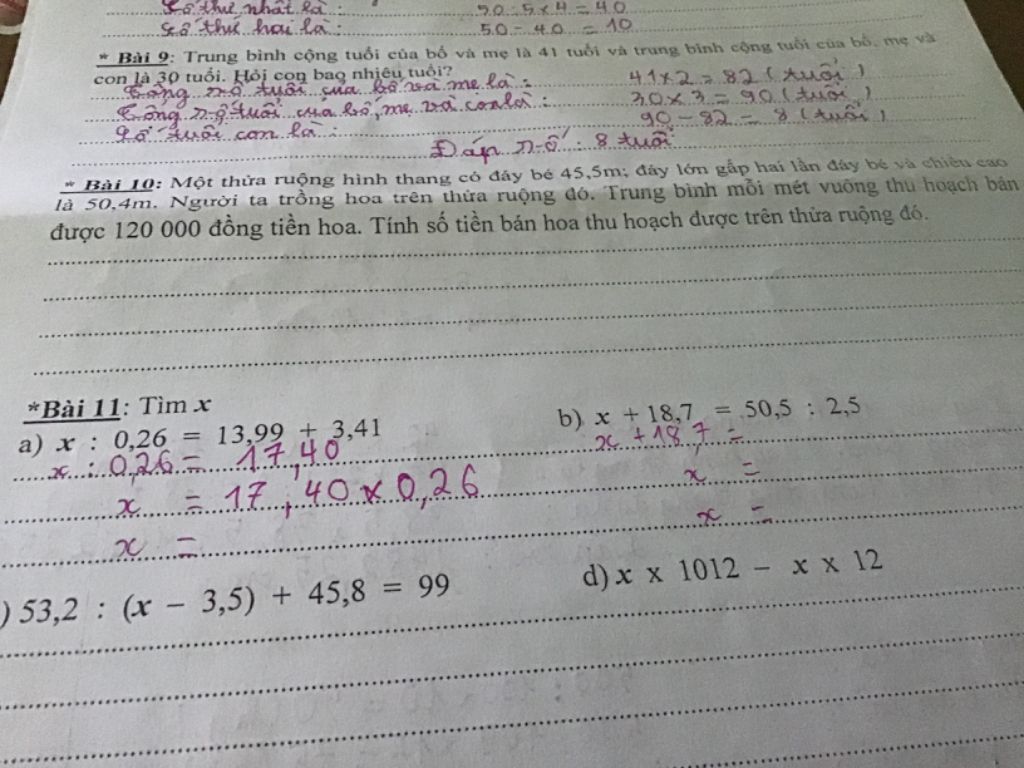 Số thứ nhất là : 50 : 5 x 4 = 40
Số thứ hai là : 50 - 40 = 10
* Bài 9: Trung bình cộng tuổi của bố và mẹ là 41 tuổi và trung bình cộng tuổi của bố, mẹ và
con là 30 tuổi. Hỏi con bao nhiêu tuổi?
Tổng số tuổi của bố và mẹ là : 41 x 2 = 82 ( tuổi )
Tổng số tuổi của bố, mẹ và con là : 30 x 3 = 90 ( tuổi )
Số tuổi con là : 90 - 82 = 8 ( tuổi )
Đáp số : 8 tuổi
* Bài 10: Một thửa ruộng hình thang có đáy bé 45,5m; đáy lớn gấp hai lần đáy bé và chiều cao
là 50,4m. Người ta trồng hoa trên thửa ruộng đó. Trung bình mỗi mét vuông thu hoạch bán
được 120 000 đồng tiền hoa. Tính số tiền bán hoa thu hoạch được trên thửa ruộng đó.
*Bài 11: Tìm x
a) x : 0,26 = 13,99 + 3,41
x : 0,26 = 17,40
x = 17,40 x 0,26
x =
b) x + 18,7 = 50,5 : 2,5
x + 18,7 =
x =
x =
) 53,2 : (x – 3,5) + 45,8 = 99
d) x x 1012 – x x 12